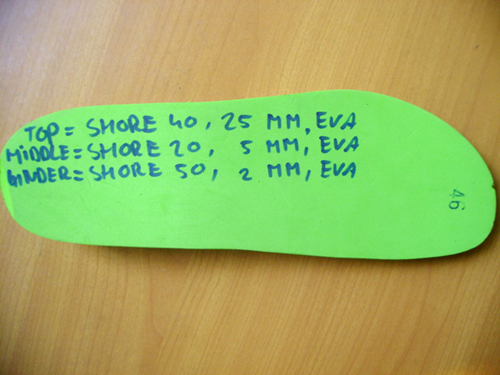 TOP = SHORE 40, 25 MM, EVA
MIDDLE = SHORE 20, 5 MM, EVA
BINDER = SHORE 50, 2 MM, EVA
46